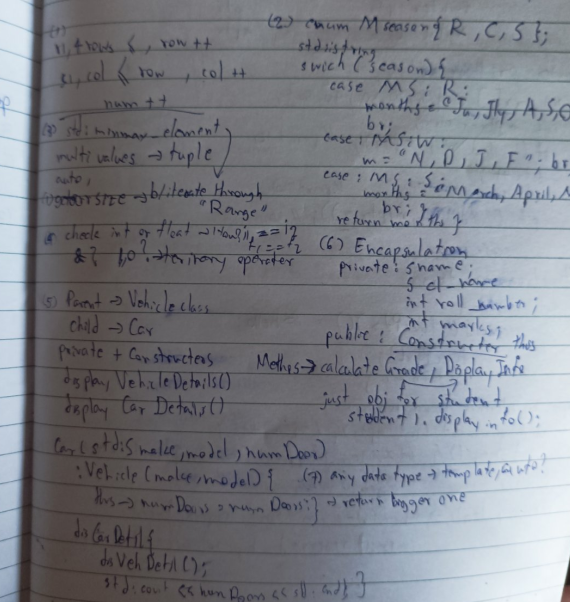 (1)
r=1, 4 rows ≤, row ++
s1, col ≤ row, col ++
num ++
(3) std::minmax_element
multi values → tuple
auto,
→ b/iterate through
"Range"
check int or float → i1 == i2
f1 == f2
&? → ternary operator
(5) Parent → Vehicle class
child → Car
private + Constructers
display VehicleDetails()
display Car Details()
Car(std::s make, model, numDoor)
: Vehicle (make, model) {
this → numDoors = numDoors; }
disCarDetil{
disVehDetil();
std::cout << numDoors << std::endl }
(2) enum Mseason{ R, C, S };
std::string
swich (season) {
case MS: R:
months = "Ju, Jly, A, S, O
br;
case: MS: W:
m = "N, D, J, F"; br,
case: MS: S:
months = "March, April, M
br; }
return months }
(6) Encapsulation
private: s name;
s cl_name
int roll_number;
int marks;
public: Constructer, this
Methods → calculate Grade, Display Info
just obj for student
student 1. display info();
(7) any data type → template, auto?
→ return bigger one